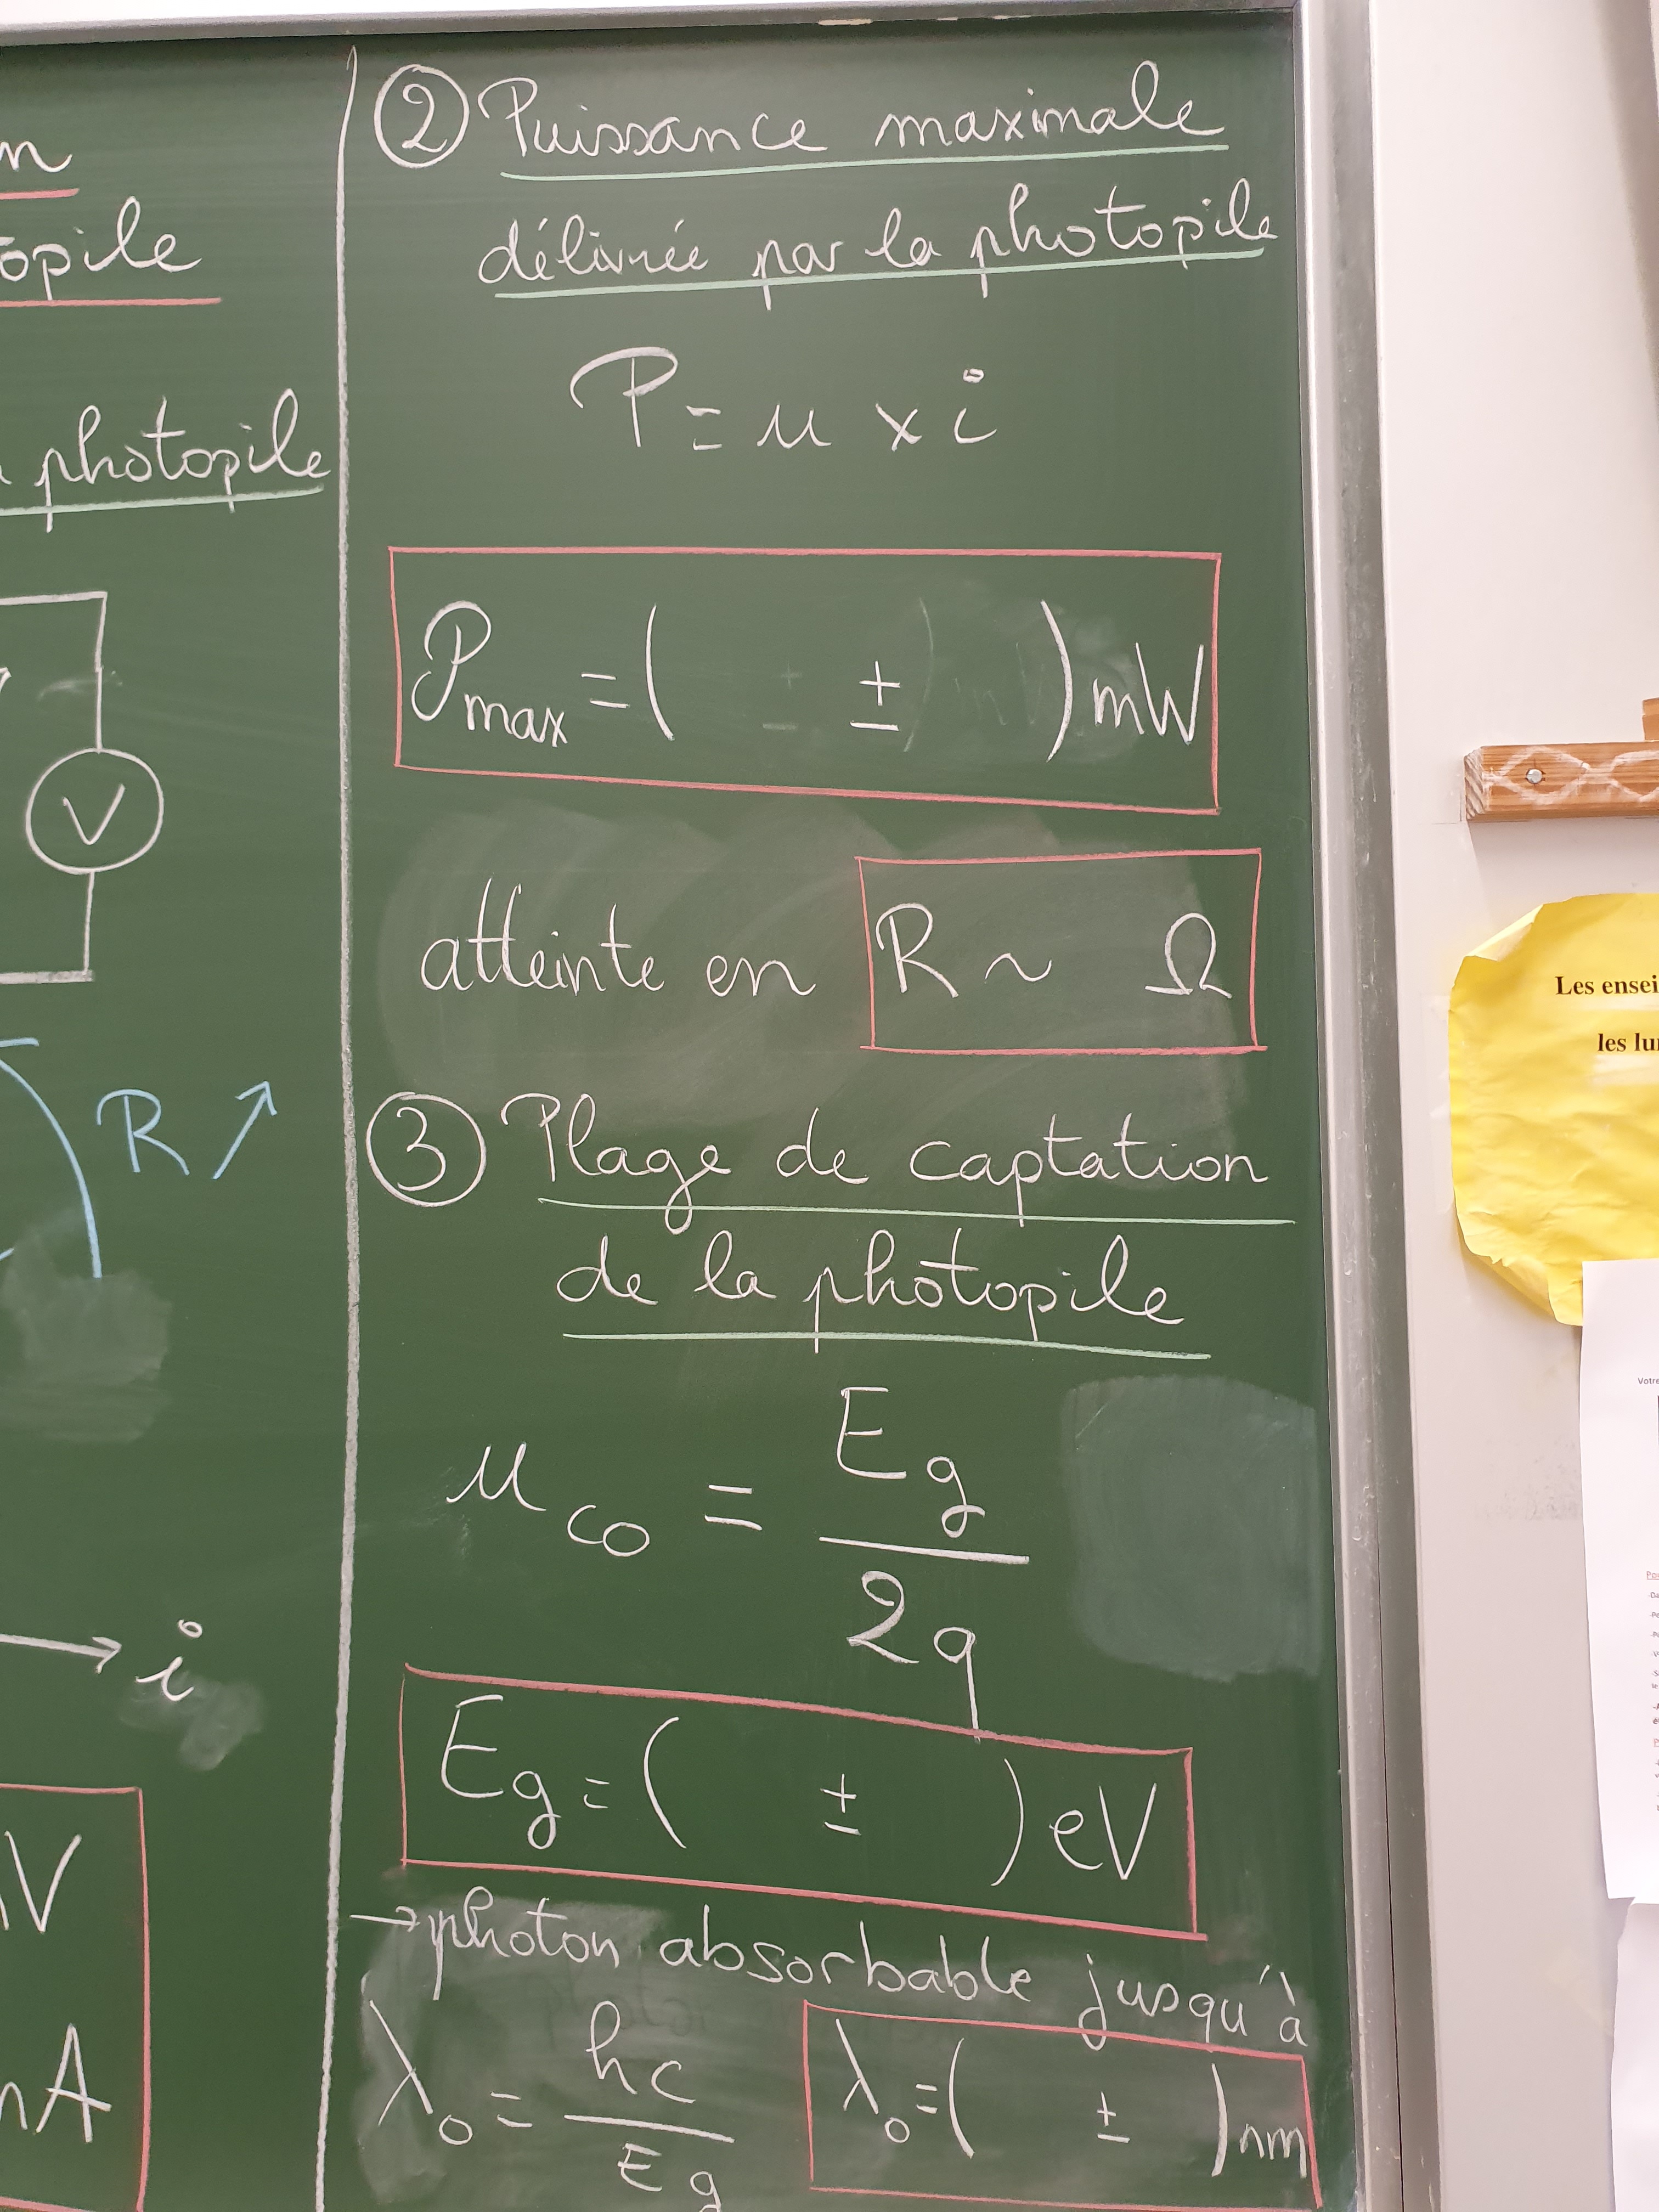 n
opile
photopile
V
R ↗
i
V
A
② Puissance maximale
délivrée par la photopile
P = u × i
Pmax = ( ± ) mW
atteinte en R ~ Ω
③ Plage de captation
de la photopile
u_co = Eg / 2q
Eg = ( ± ) eV
→ photon absorbable jusqu'à
λ₀ = hc / Eg λ₀ = ( ± ) nm
Les ensei
les lu
Votre